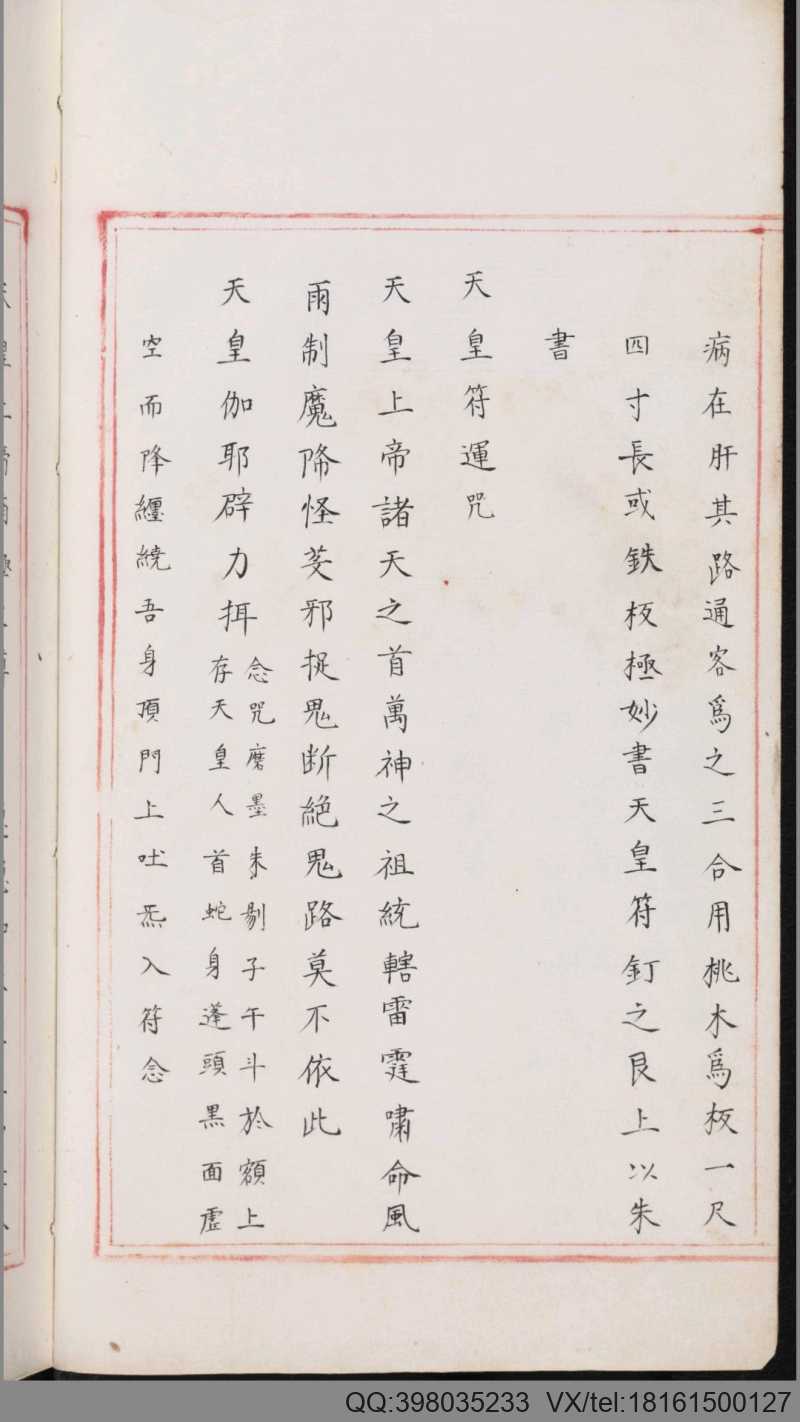 病在肝其路通客爲之三合用桃木爲板一尺
四寸長或鉄板極妙書天皇符釘之艮上以朱
書
天皇符運咒
天皇上帝諸天之首萬神之祖統轄雷霆嘯命風
雨制魔降怪芟邪捉鬼断絶鬼路莫不依此
天皇伽耶辟力揖
念咒磨墨朱剔子午斗於額上
存天皇人首蛇身蓬頭黑面虛
空而降纒繞吾身頂門上吐炁入符念
QQ:398035233 VX/tel:18161500127